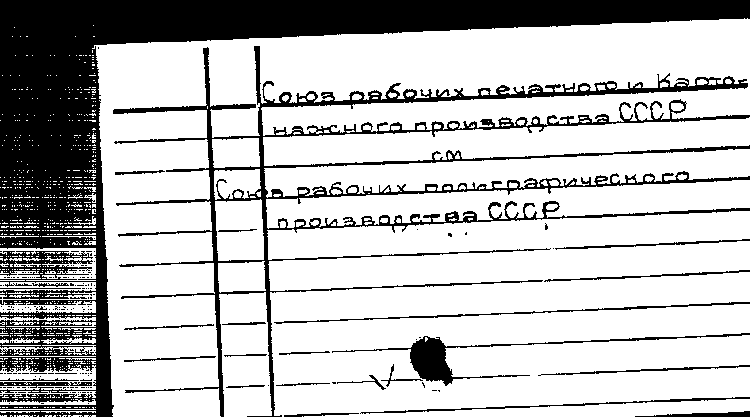 Союз рабочих печатного и Карто-
нажного производства СССР
см
Союз рабочих полиграфического
производства СССР